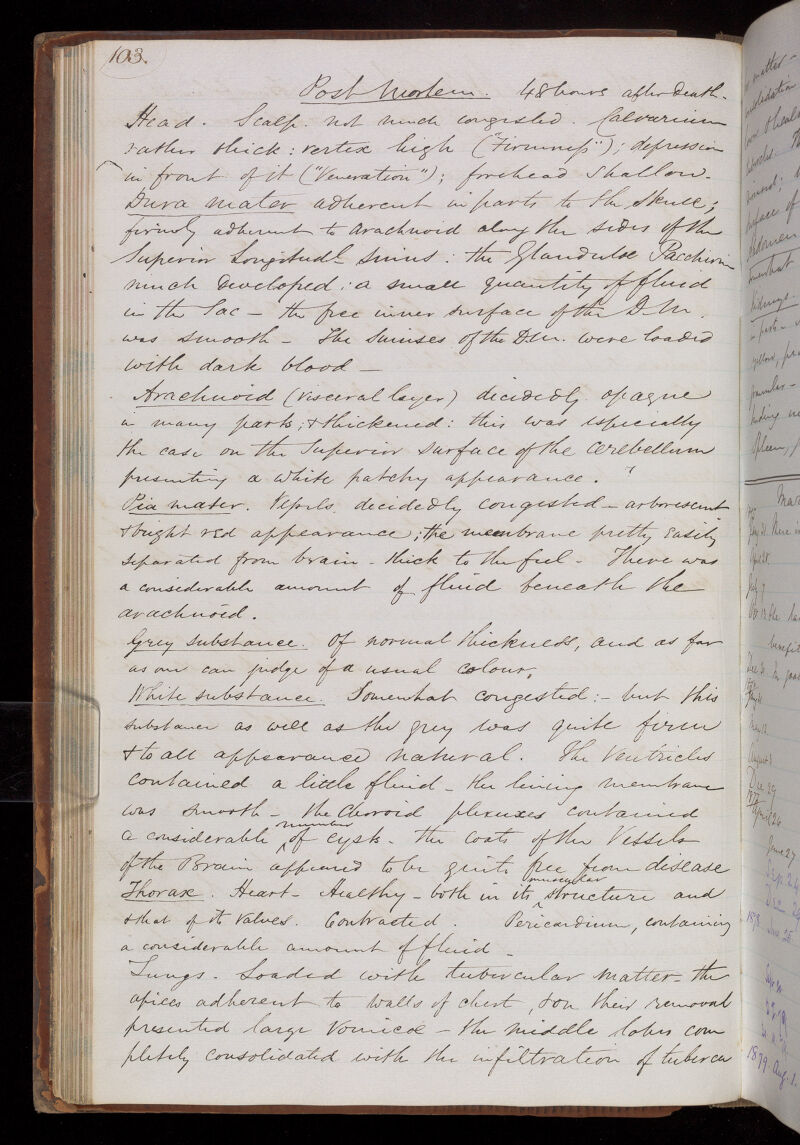 103.
Post Mortem. 48 hours after death.
Head. Scalp. not much congested. Calvarium
rather thick: vertex high ("Firmness"); depression
in front of it ("Veneration"); forehead shallow.
Dura mater adherent in parts to the Skull;
firmly adherent to arachnoid along the sides of the
Superior Longitudl. sinus: the Glandulæ Pacchioni
much developed: a small quantity of fluid
in the Sac – the free inner surface of the D.M.
was smooth – The Sinuses of the D.M. were loaded
with dark blood –
Arachnoid (visceral layer) decidedly opaque
in many parts; & thickened: this was especially
the case on the Superior surface of the Cerebellum
presenting a white patchy appearance.
Pia mater. Vessels decidedly congested – arborescent
& bright red appearance; the membrane pretty easily
separated from brain – thick to the feel – There was
a considerable amount of fluid beneath the
arachnoid.
Grey substance. Of normal thickness, and as far
as one can judge of a usual colour,
White substance. Somewhat congested: – but this
substance as well as the grey was quite firm
& to all appearance natural. The Ventricles
contained a little fluid – the lining membrane
was smooth – the Choroid plexuses contained
a considerable number of cysts – the coats of the Vessels
of the Brain appeared to be quite free from disease
Thorax. Heart – Healthy – both in its muscular structure and
& that of its valves. Contracted. Pericardium, containing
a considerable amount of fluid –
Lungs. Loaded with tubercular matter – the
apices adherent to walls of chest, & on their removal
presented large Vomicæ – the middle lobes com
pletely consolidated with the infiltration of tubercu
matter –
Spleen,
April 28
July 7
benefit
Aug 12
August 3
Dec 29
April 26
June 27
1878
1879. Aug. 1.